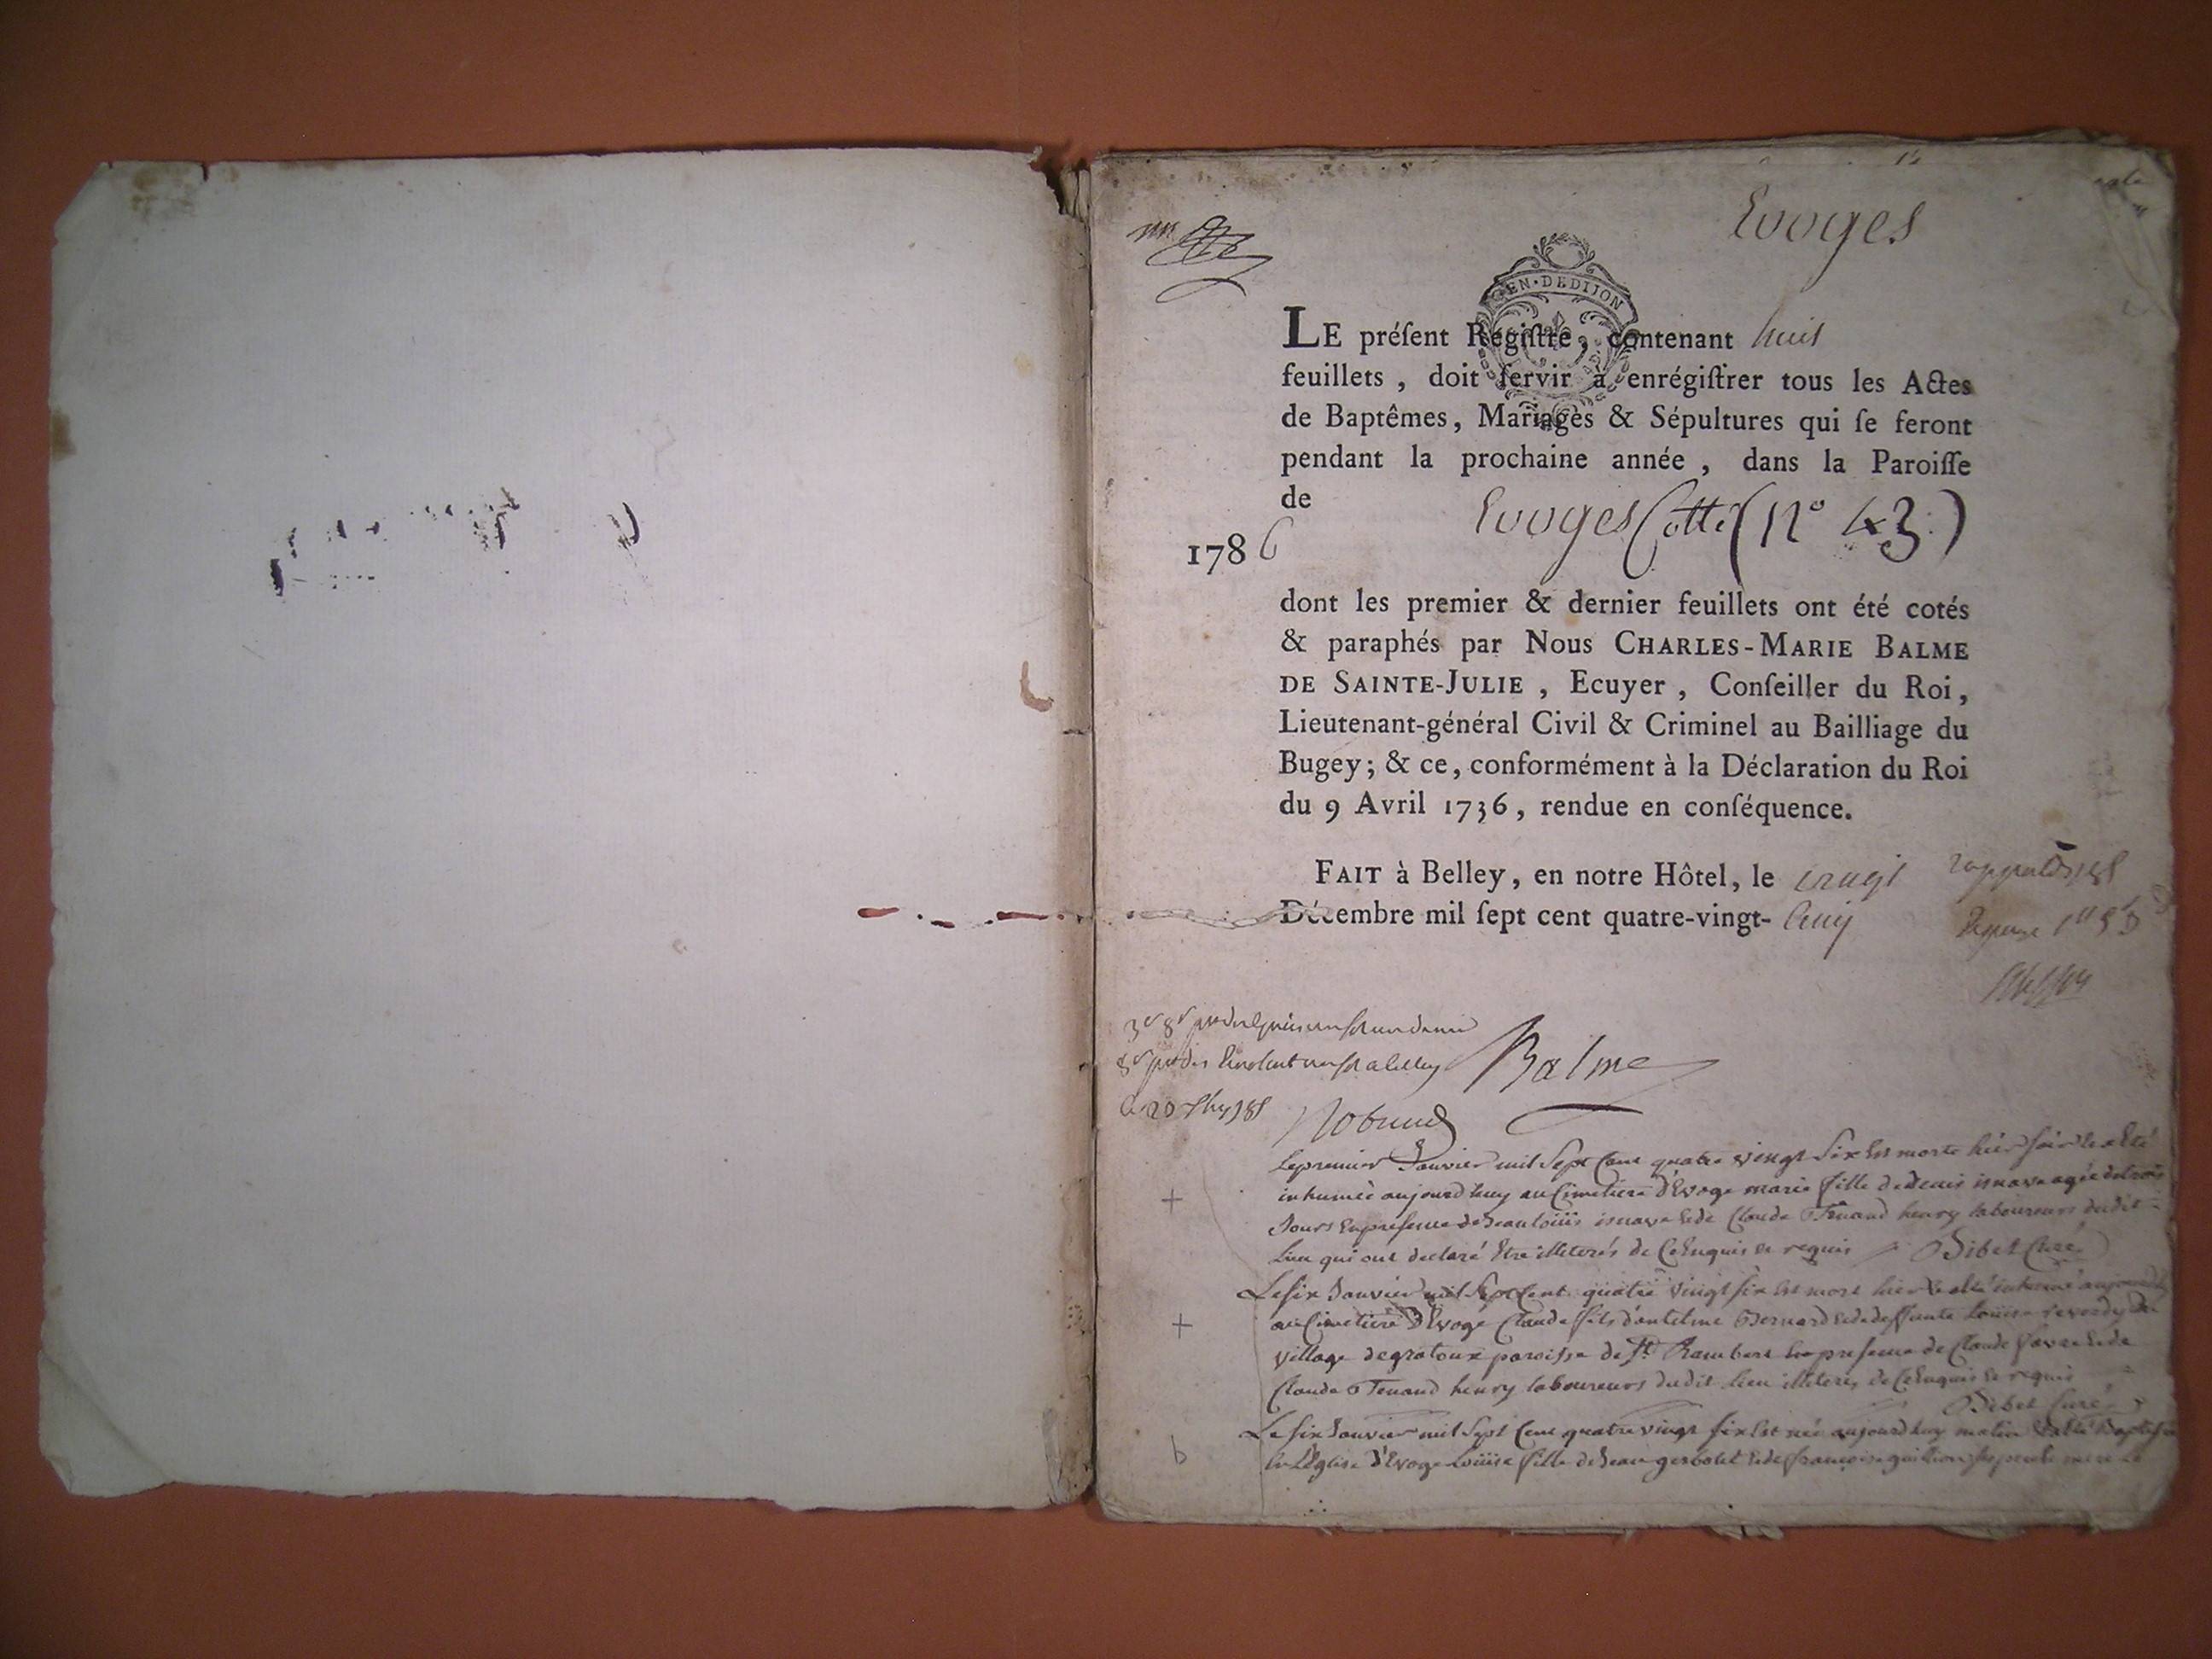 Evoges
GEN · DE DIJON
LE préſent Regiſtre, contenant huit
feuillets, doit ſervir à enrégiſtrer tous les Actes
de Baptêmes, Mariages & Sépultures qui ſe feront
pendant la prochaine année, dans la Paroiſſe
de Evoges Cotte (n° 43)
1786
dont les premier & dernier feuillets ont été cotés
& paraphés par Nous CHARLES-MARIE BALME
DE SAINTE-JULIE, Ecuyer, Conſeiller du Roi,
Lieutenant-général Civil & Criminel au Bailliage du
Bugey; & ce, conformément à la Déclaration du Roi
du 9 Avril 1736, rendue en conſéquence.
FAIT à Belley, en notre Hôtel, le vingt
Décembre mil ſept cent quatre-vingt-cinq
Balme
Le premier Janvier mil Sept Cent quatre vingt Six Est morte hier soir et a Eté
inhumée aujourd'huy au Cimetiere d'Evoge marie fille de denis agée de trois
Jours En presence de Jean loüis et de Claude henry laboureurs dudit
Lieu qui ont declaré Etre illeterés de ce Enquis et requis Bibet Curé
Le six Janvier mil Sept Cent quatre vingt six Est mort hier et a Eté inhumé
au Cimetiere d'Evoge Claude fils d'antelme Bernard et de deffunte Loüise
village de gratoux paroisse de St Rambert En presence de Claude favre et de
Claude henry laboureurs dudit lieu illeterés de ce Enquis et requis
Bibet Curé
Le six Janvier mil Sept Cent quatre vingt six Est née aujourd'huy matin Et a Eté Baptisée
En L'Eglise d'Evoge Loüise fille de Jean gerbolet et de françoise